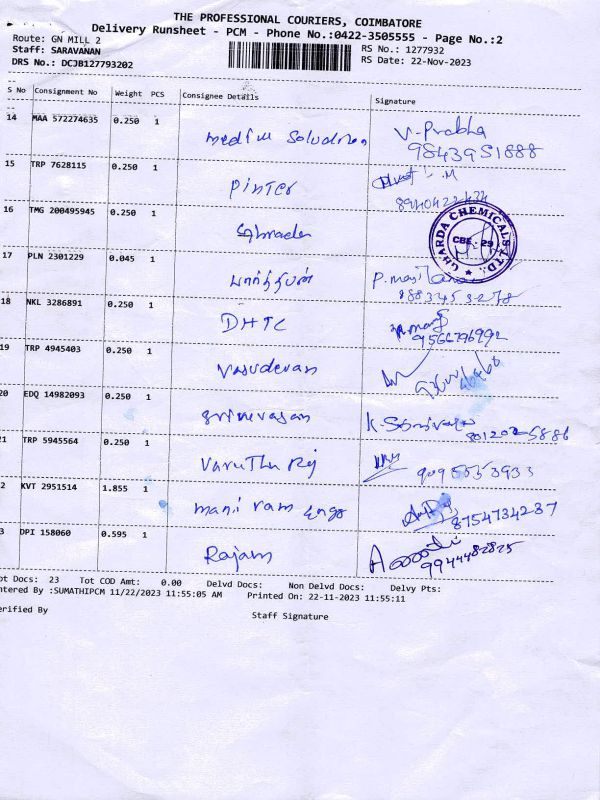 THE PROFESSIONAL COURIERS, COIMBATORE
Delivery Runsheet - PCM - Phone No.:0422-3505555 - Page No.:2
Route: GN MILL 2
RS No.: 1277932
Staff: SARAVANAN
RS Date: 22-Nov-2023
DRS No.: DCJB127793202
S No Consignment No Weight PCS Consignee Details Signature
14 MAA 572274635 0.250 1 V-Prabha
9843951888
15 TRP 7628115 0.250 1 Pinter
16 TMG 200495945 0.250 1
GHARDA CHEMICALS LTD.
CBE - 29
17 PLN 2301229 0.045 1 பார்த்திபன்
8883453278
18 NKL 3286891 0.250 1 DHTC
9566796992
19 TRP 4945403 0.250 1 Vasudevan
20 EDQ 14982093 0.250 1 Srinivasan
21 TRP 5945564 0.250 1 Varuthu Raj
2 KVT 2951514 1.855 1 mani ram Engg
8754734237
3 DPI 158060 0.595 1 Rajam
9944482825
ot Docs: 23 Tot COD Amt: 0.00 Delvd Docs: Non Delvd Docs: Delvy Pts:
ntered By :SUMATHIPCM 11/22/2023 11:55:05 AM Printed On: 22-11-2023 11:55:11
erified By
Staff Signature